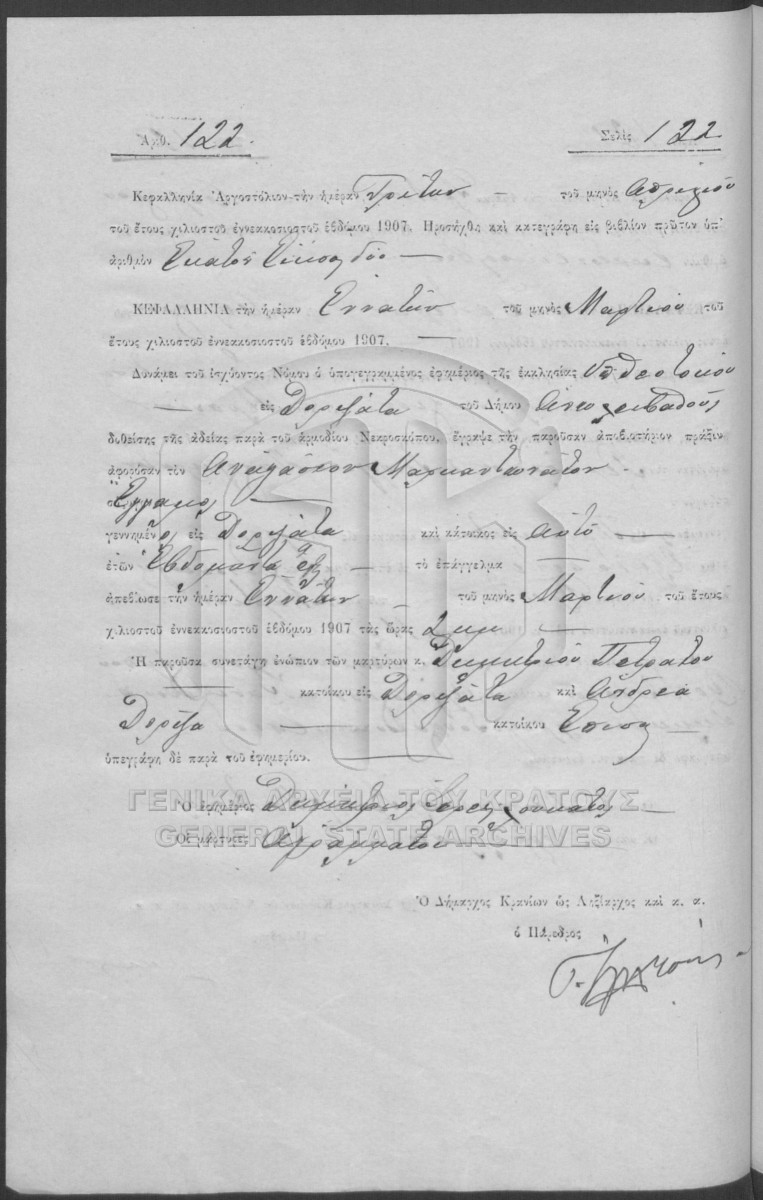 Ἀριθ. 122.
Σελὶς 122
Κεφαλληνία Ἀργοστόλιον τὴν ἡμέραν Τρίτην — τοῦ μηνὸς Ἀπριλίου
τοῦ ἔτους χιλιοστοῦ ἐννεακοσιοστοῦ ἑβδόμου 1907. Προσήχθη καὶ κατεγράφη εἰς βιβλίον πρῶτον ὑπ'
ἀριθμὸν Ἑκατὸν Εἴκοσι δύο —
ΚΕΦΑΛΛΗΝΙΑ τὴν ἡμέραν Ἐννάτην τοῦ μηνὸς Μαρτίου τοῦ
ἔτους χιλιοστοῦ ἐννεακοσιοστοῦ ἑβδόμου 1907. —
Δυνάμει τοῦ ἰσχύοντος Νόμου ὁ ὑπογεγραμμένος ἐφημέριος τῆς ἐκκλησίας Ὑπ. Θεοτόκου
— εἰς Δοριζάτα τοῦ Δήμου
δοθείσης τῆς ἀδείας παρὰ τοῦ ἁρμοδίου Νεκροσκόπου, ἔγραψε τὴν παροῦσαν ἀποβιωτήριον πρᾶξιν
ἀφορῶσαν τὸν Ἀναστάσιον Μαρκαντωνάτον —
Ἔγγαμος —
γεννημένος εἰς Δοριζάτα καὶ κάτοικος εἰς Αὐτὸ —
ἐτῶν Ἑβδομῆντα ἓξ — τὸ ἐπάγγελμα
ἀπεβίωσε τὴν ἡμέραν Ἐννάτην — τοῦ μηνὸς Μαρτίου τοῦ ἔτους
χιλιοστοῦ ἐννεακοσιοστοῦ ἑβδόμου 1907 τὰς ὥρας 2 μμ —
Ἡ παροῦσα συνετάγη ἐνώπιον τῶν μαρτύρων κ. Δημητρίου Πετράτου
— κατοίκου εἰς Δοριζάτα καὶ Ἀνδρέα
Δορίζα — κατοίκου Ἐπίσης —
ὑπεγράφη δὲ παρὰ τοῦ ἐφημερίου. —
ΓΕΝΙΚΑ ΑΡΧΕΙΑ ΤΟΥ ΚΡΑΤΟΥΣ
Ὁ ἐφημέριος Δημήτριος Ἱερεὺς —
GENERAL STATE ARCHIVES
Οἱ μάρτυρες Ἀγράμματοι
Ὁ Δήμαρχος Κρανίων ὡς Ληξίαρχος καὶ κ. α.
ὁ Πάρεδρος